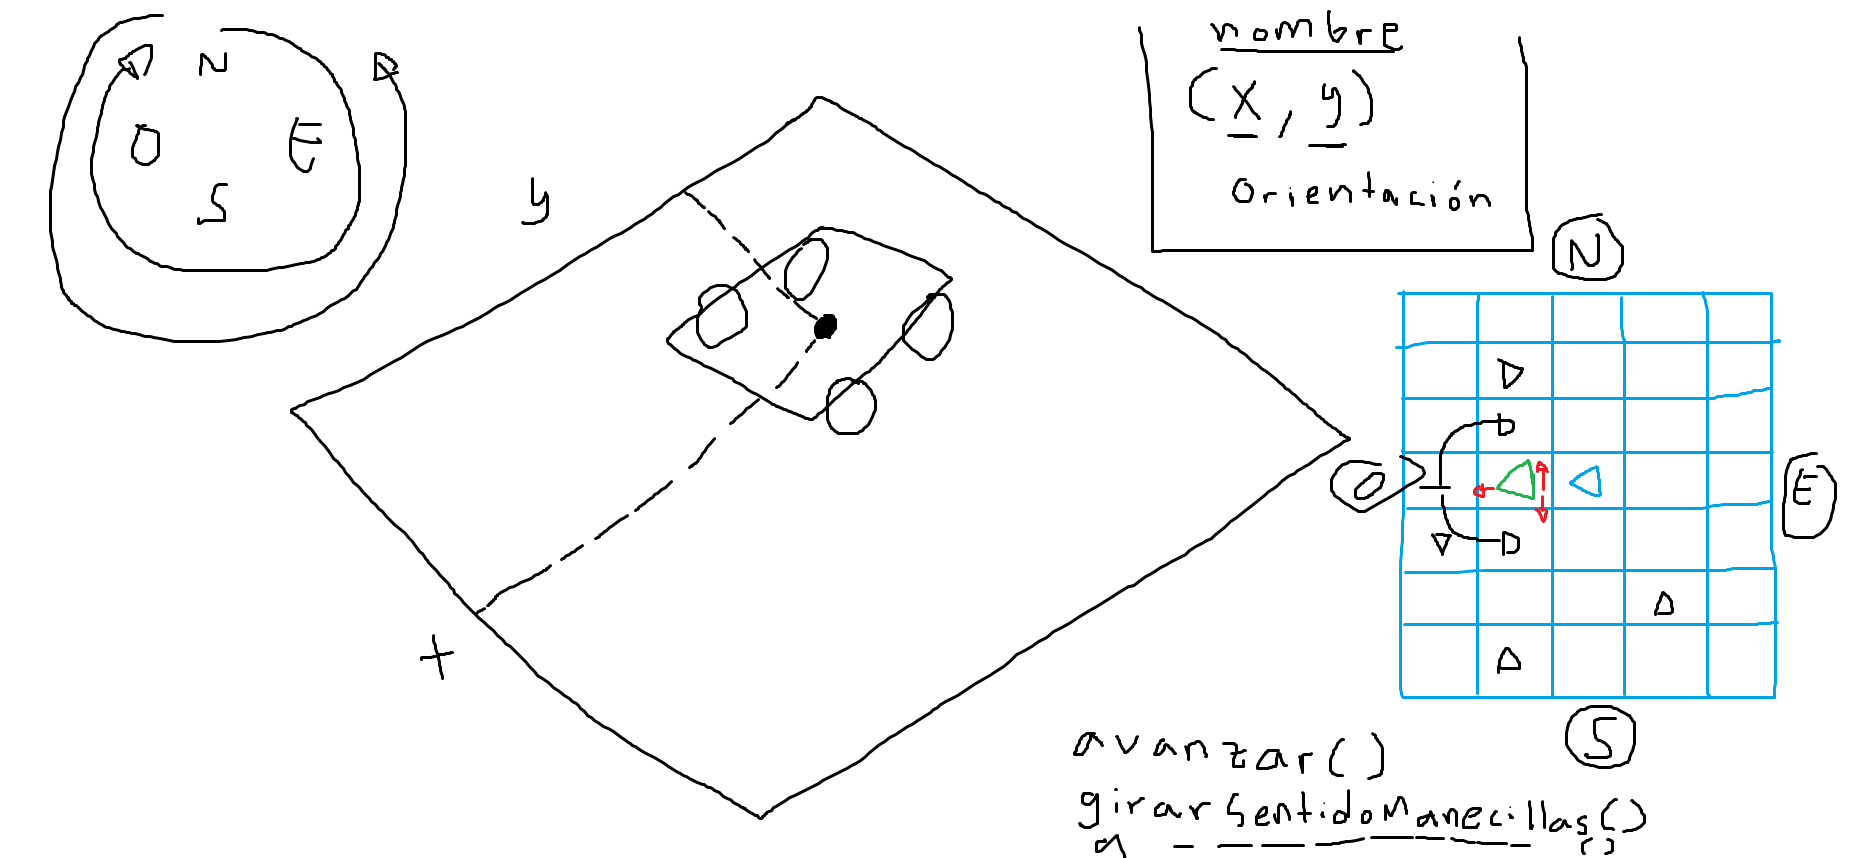 N
O E
S
y
x
nombre
(x, y)
Orientación
N
O
E
S
avanzar()
girarSentidoManecillas()